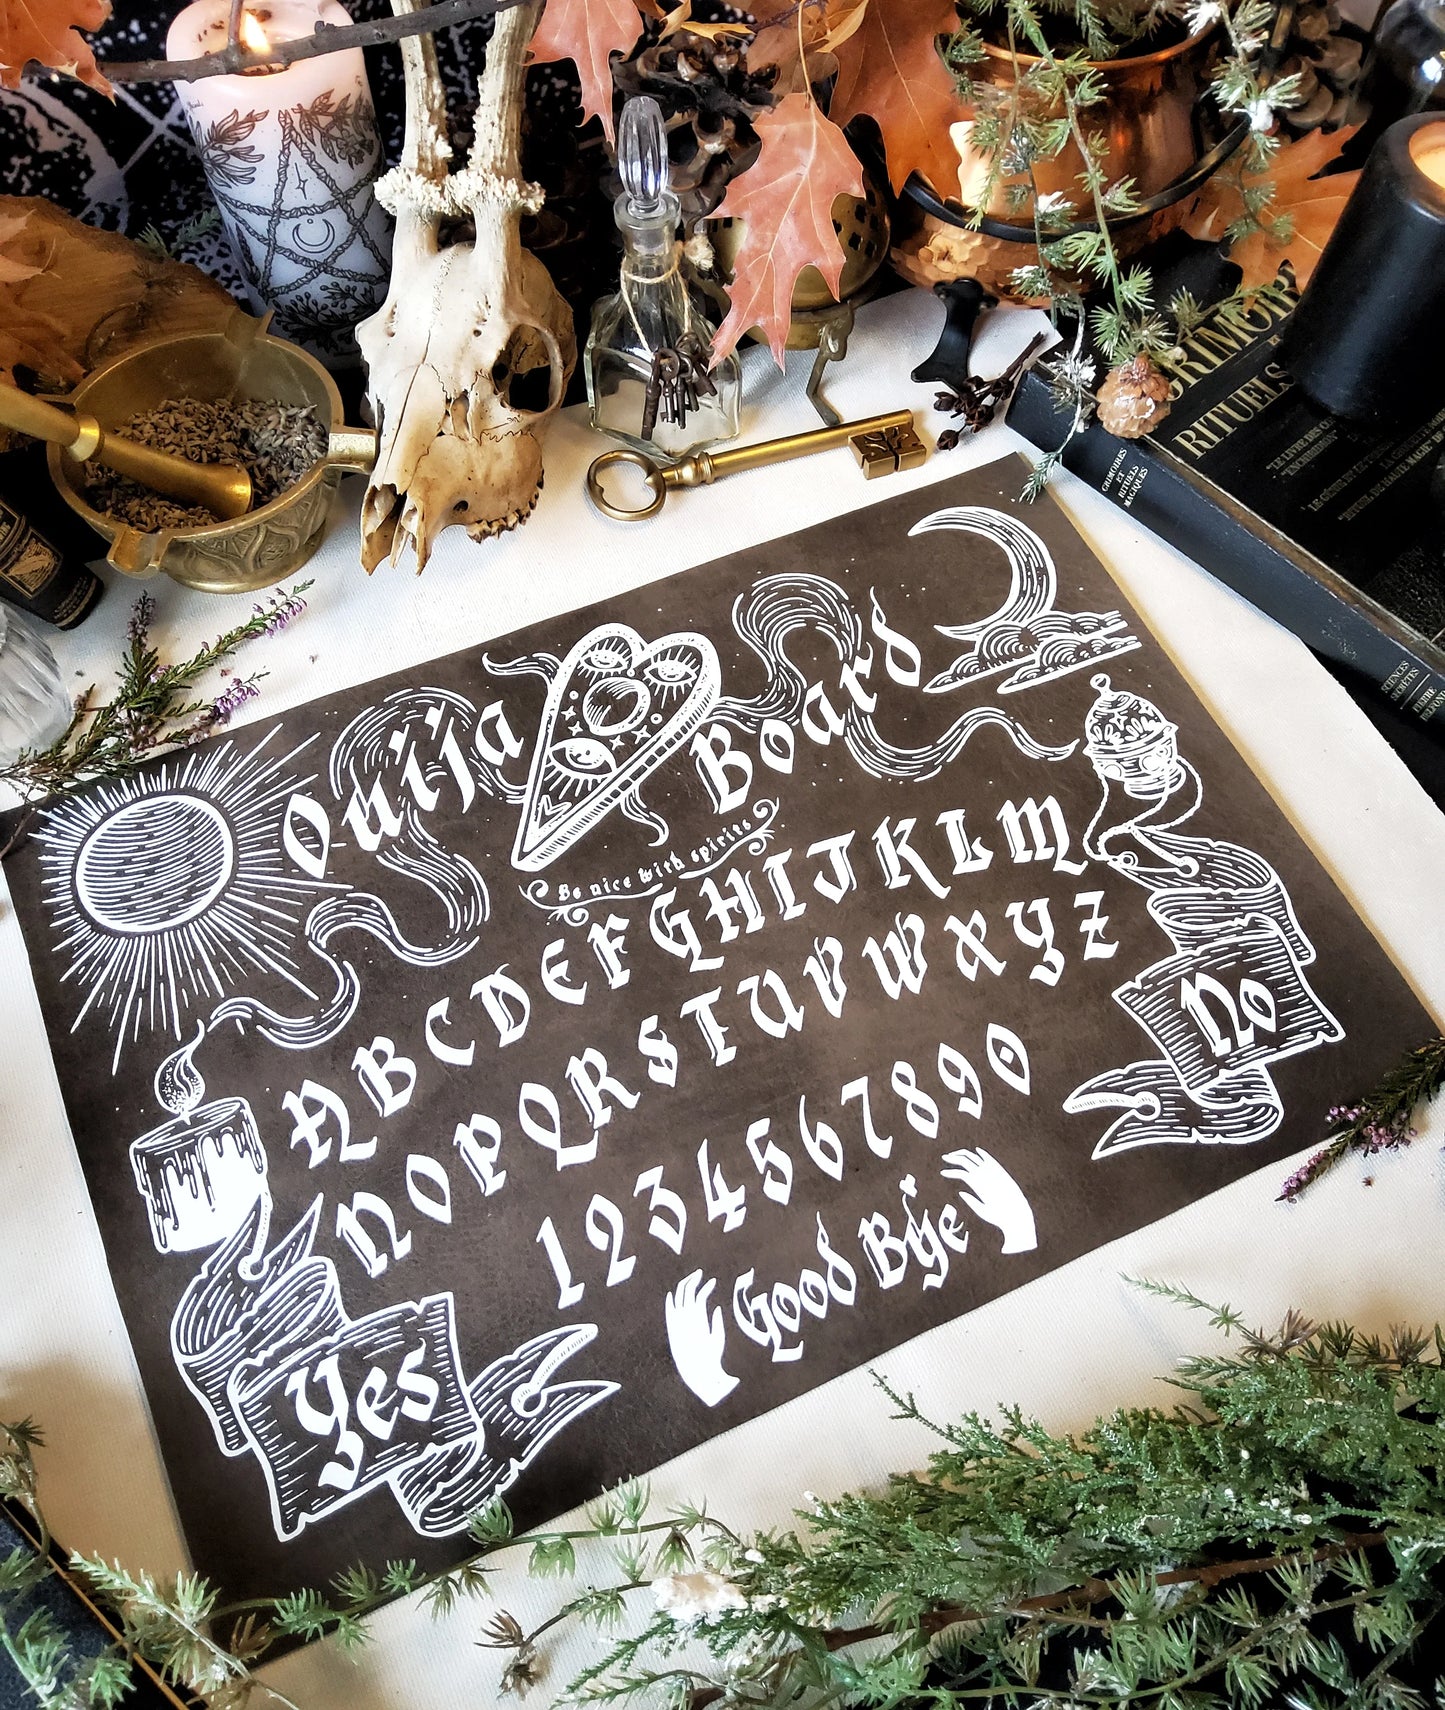 GRIMOIR
ET
RITUELS
"LE LIVRE DES
GRIMOIRES
ET
RITUELS
MAGIQUES
SCIENCES
SECRÈTES
Ouija Board
Be nice with spirits
ABCDEFGHIJKLM
NOPQRSTUVWXYZ
1234567890
Yes
No
Good Bye